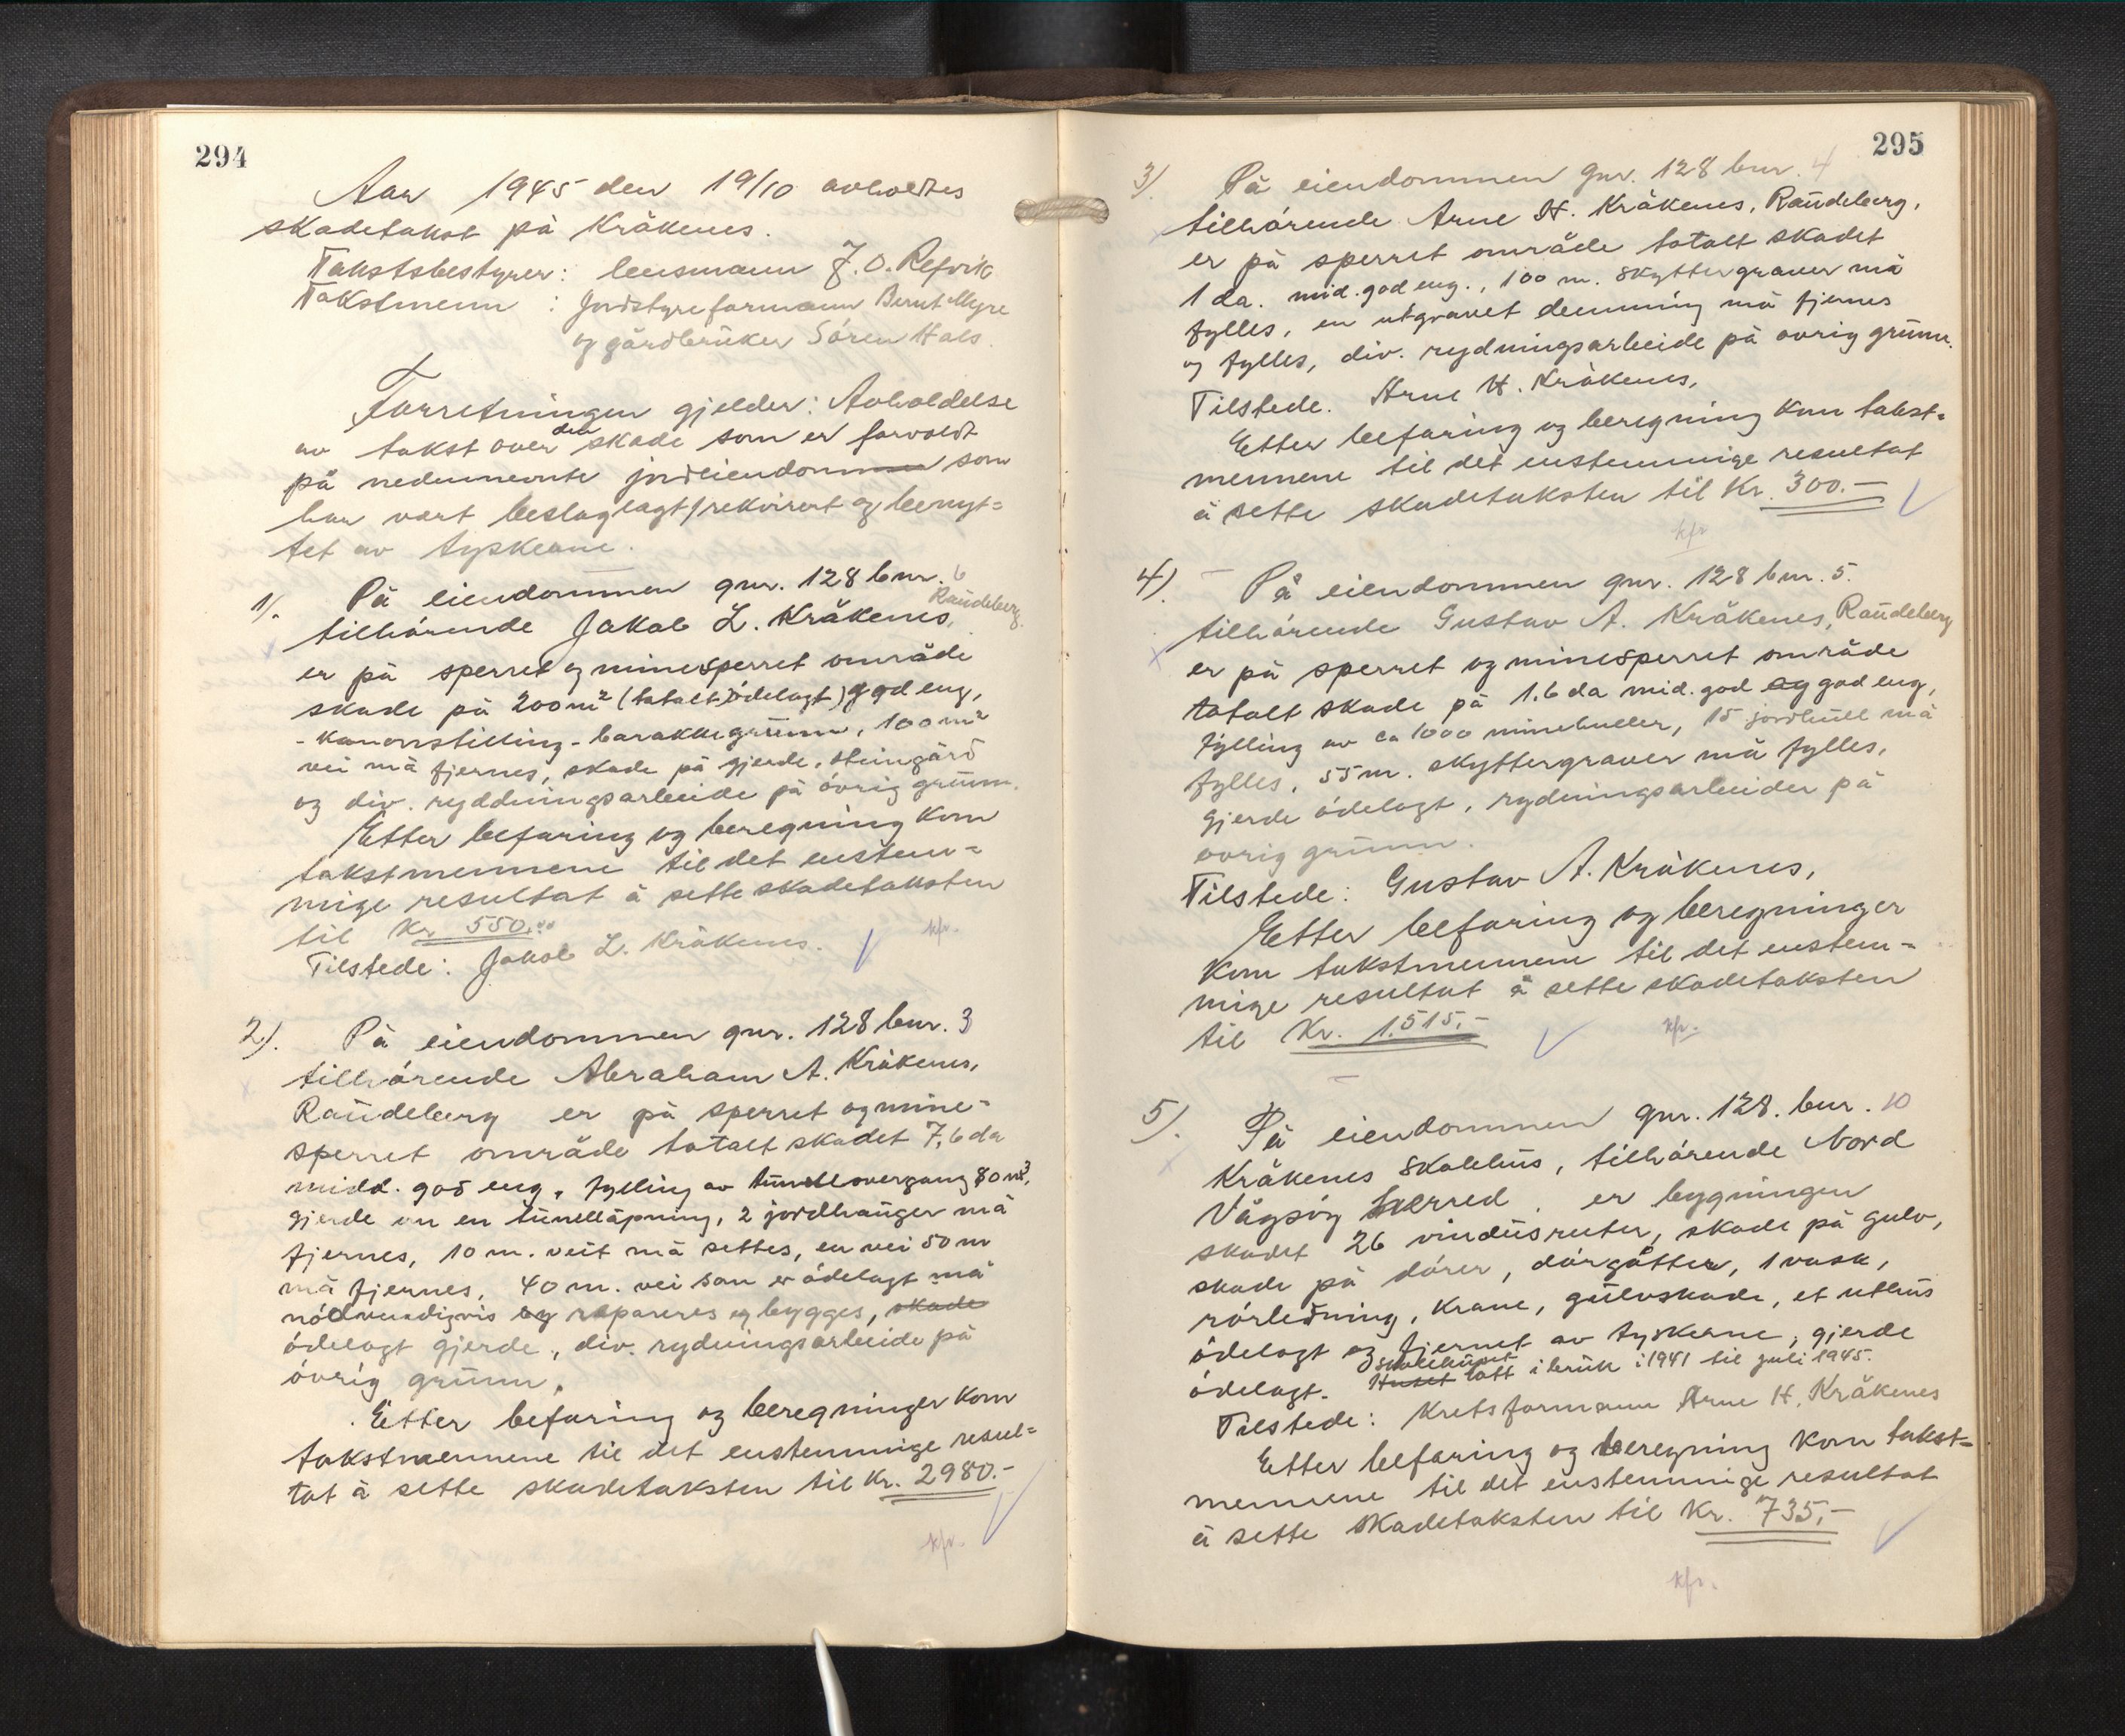 294
Aar 1945 den 19/10 avholdtes
skadetakst på Kråkenes.
Takstsbestyrer: lensmann J. O. Refvik
Takstmenn : Jordstyreformann Bernt Myre
og gårdbrüker Sören Hals.
Forretningen gjelder: Avholdelse
av takst over den skade som er forvoldt
på nedennevnte jordeiendommen som
har vært beslaglagt/rekvirert og benyt=
tet av tyskerne.
1). På eiendommen gnr. 128 bnr. 6
tilhörende Jakob L. Kråkenes, Raüdeberg.
er på sperret og minesperret område
skade på 200 m² (totalt ödelagt) god eng,
- kanonstilling - barakkegrünn, 100 m²
vei må fjernes, skade på gjerde, steingård
og div. ryddningsarbeide på övrig grünn.
Etter befaring og beregning kom
takstmennene til det enstem=
mige resultat å sette skadetaksten
til Kr 550.00
Tilstede: Jakob L. Kråkenes.
kfr.
2). På eiendommen gnr. 128 bnr. 3
tilhörende Abraham A. Kråkenes,
Raüdeberg er på sperret og mine-
sperret område totalt skadet 7,6 da
midd. god eng, fylling av tünellovergang 80 m³,
gjerde om en tünellåpning, 2 jordhaüger må
fjernes, 10 m. veit må settes, en vei 50 m
må fjernes, 40 m. vei som er ödelagt må
nödvendigvis og repareres og bygges, skade
ödelagt gjerde, div. rydningsarbeide på
övrig grünn.
Etter befaring og beregninger kom
takstmennene til det enstemmige resul=
tat å sette skadetaksten til Kr. 2980.-
kfr.
295
3) På eiendommen gnr. 128 bnr. 4
tilhörende Arne H. Kråkenes, Raüdeberg,
er på sperret område totalt skadet
1 da. mid. god eng., 100 m. skyttergraver må
fylles, en utgravet demning må fjernes
og fylles, div. rydningsarbeide på övrig grünn.
Tilstede. Arne H. Kråkenes,
Etter befaring og beregning kom takst=
mennene til det enstemmige resultat
å sette skadetaksten til Kr. 300.-
kfr
4). På eiendommen gnr. 128 bnr. 5.
tilhörende Gustav A. Kråkenes, Raüdeberg
er på sperret og minesperret område
totalt skade på 1.6 da mid. god og god eng,
fylling av ca 1000 minehuller, 15 jordhüll må
fylles, 55 m. skyttergraver må fylles,
gjerde ödelagt, rydningsarbeider på
övrig grünn.
Tilstede: Gustav A. Kråkenes,
Etter befaring og beregninger
kom takstmennene til det enstem-
mige resultat å sette skadetaksten
til Kr. 1.515.-
kfr.
5). På eiendommen gnr. 128. bnr. 10
Kråkenes skolehüs, tilhörende Nord
Vågsöy herred. er bygningen
skadet 26 vindüsruter, skade på gulv,
skade på dörer, dörgåtter, 1 vask,
rörledning, krane, gülvskade, et uthüs
ödelagt og fjernet av tyskerne, gjerde
ödelagt. Huset skolehüset tatt i brük i 1941 til juli 1945.
Tilstede: Kretsformann Arne H. Kråkenes
Etter befaring og beregning kom takst=
mennene til det enstemmige resultat
å sette skadetaksten til Kr. 735,-
kfr.